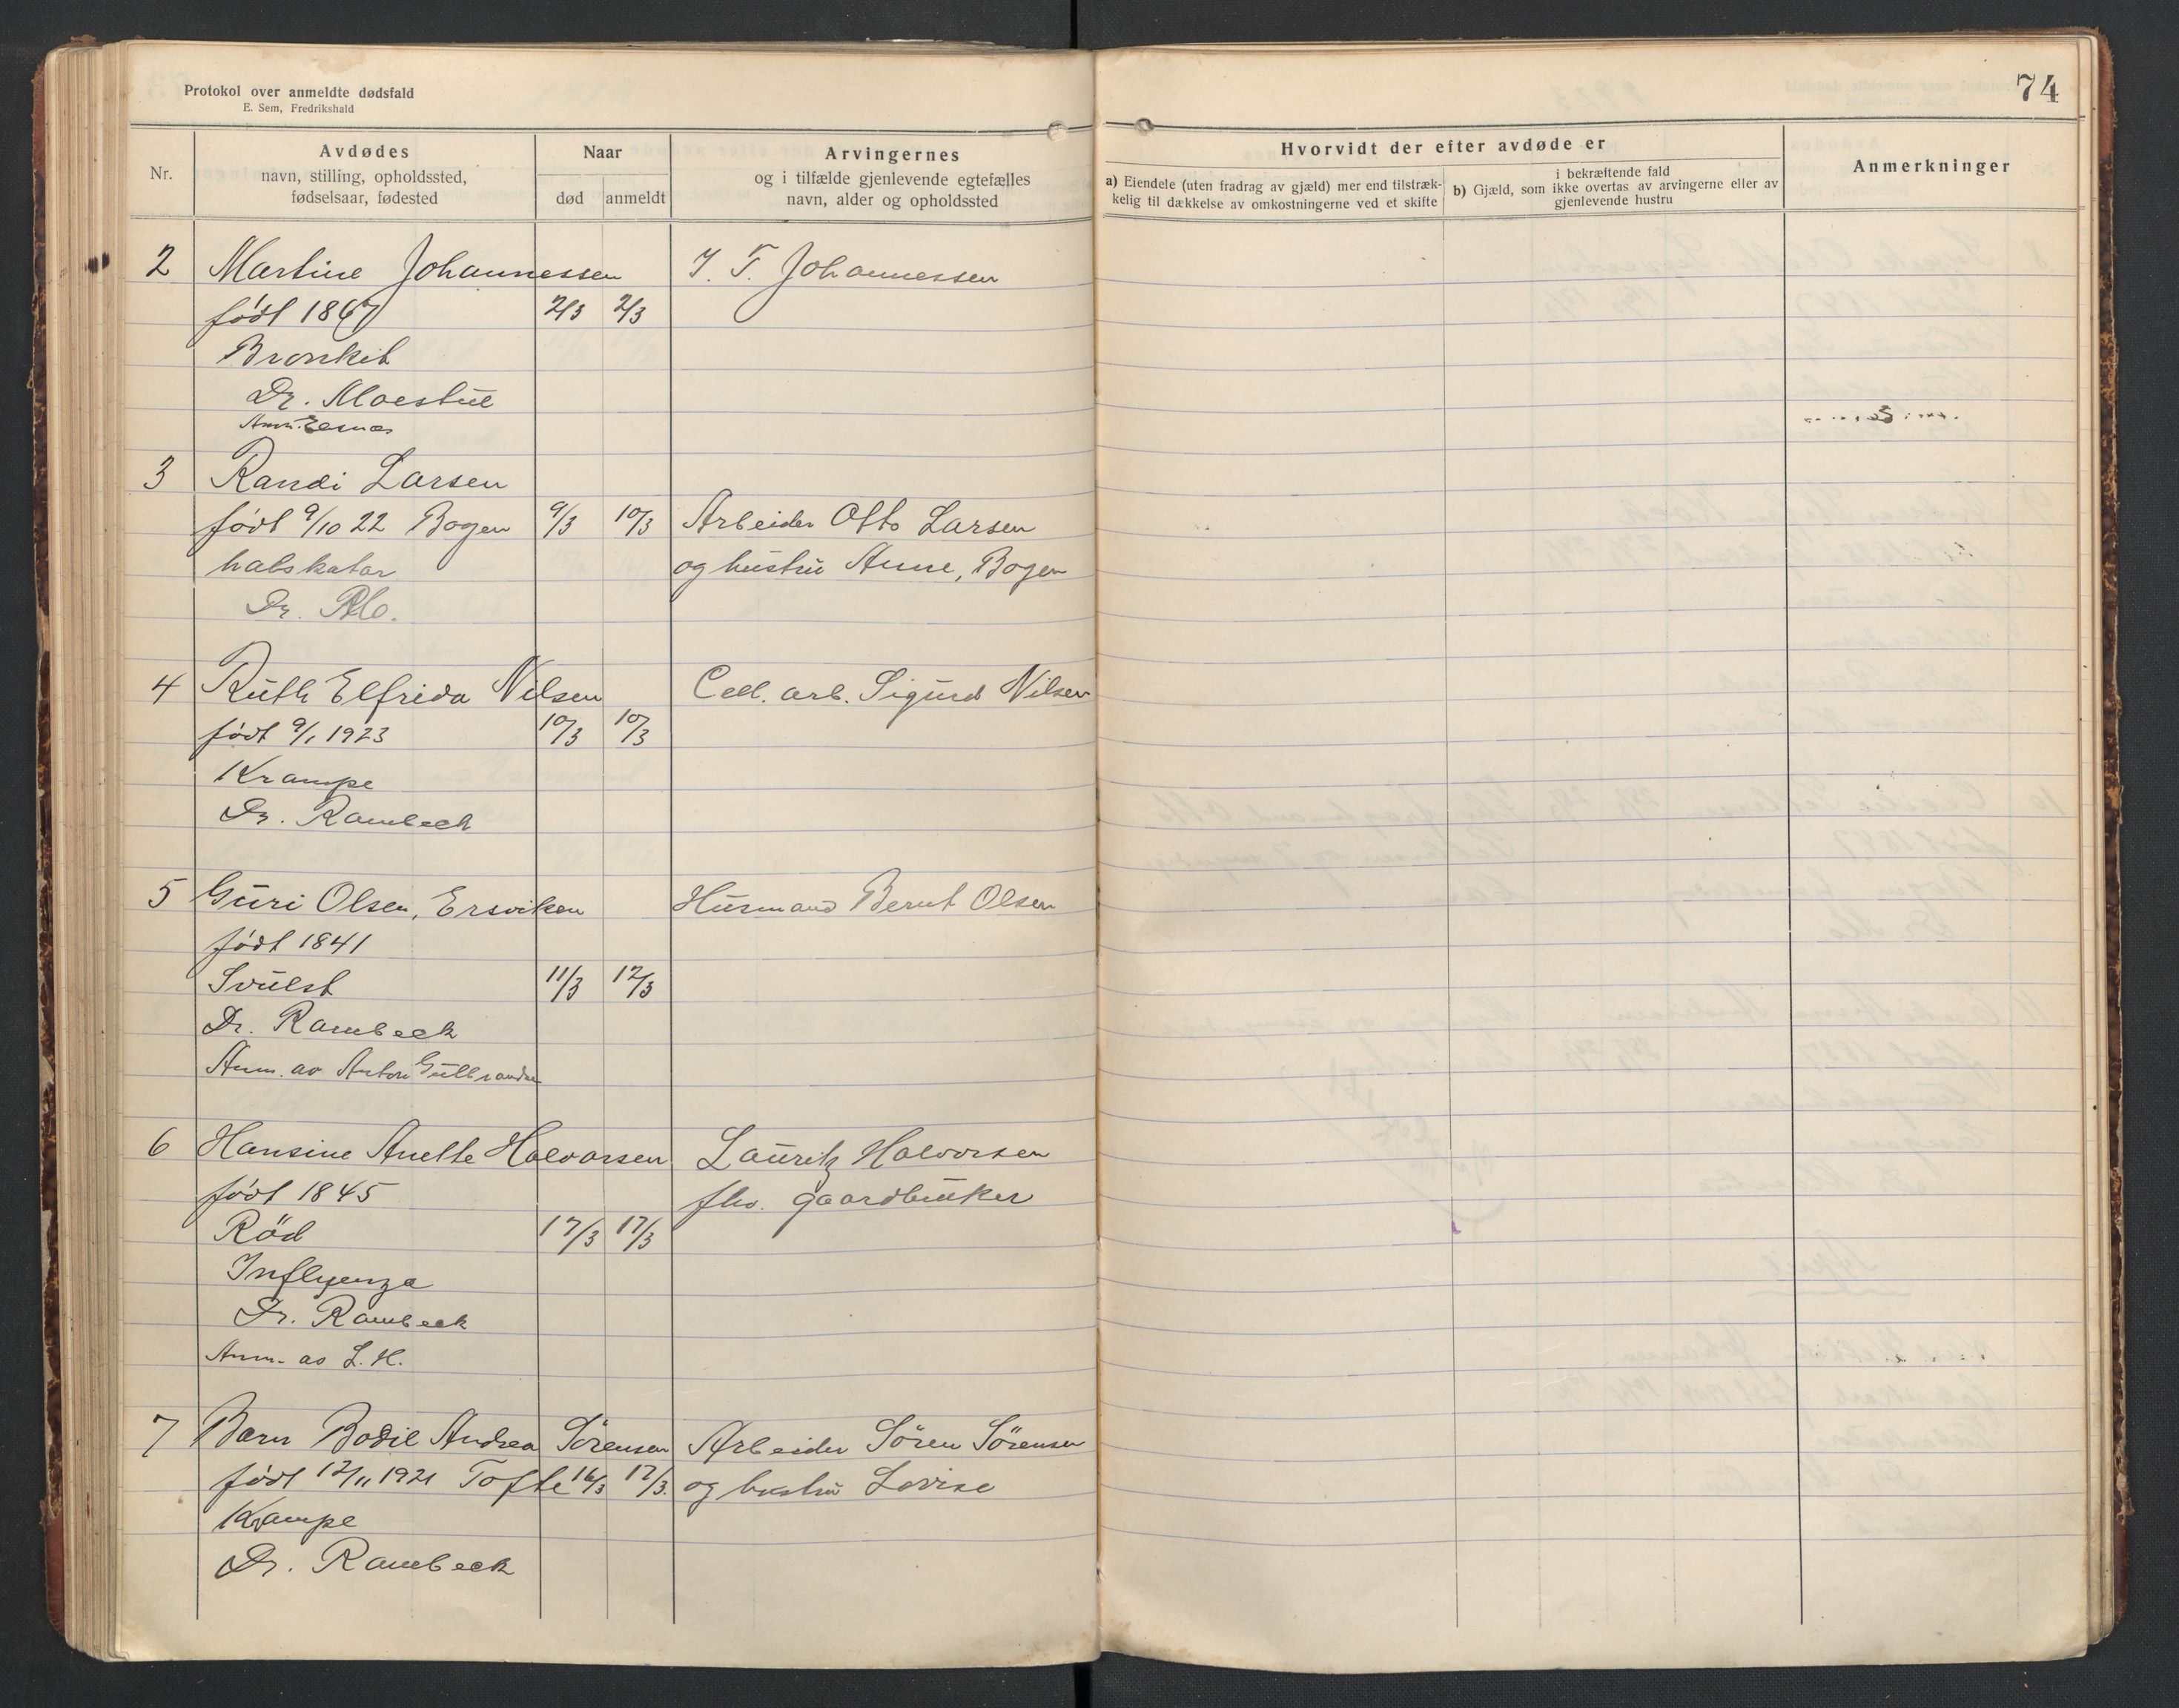 Protokol over anmeldte dødsfald
E. Sem, Fredrikshald
74
Nr.
Avdødes
navn, stilling, opholdssted,
fødselsaar, fødested
Naar
død
anmeldt
Arvingernes
og i tilfælde gjenlevende egtefælles
navn, alder og opholdssted
Hvorvidt der efter avdøde er
a) Eiendele (uten fradrag av gjæld) mer end tilstræk-
kelig til dækkelse av omkostningerne ved et skifte
i bekræftende fald
b) Gjæld, som ikke overtas av arvingerne eller av
gjenlevende hustru
Anmerkninger
2 Martine Johannessen J. T. Johannessen
født 1867 2/3 2/3
Bronkit
Dr. Moestue
Anm.
3 Randi Larsen
født 9/10 22 Bogen 9/3 10/3 Arbeider Otto Larsen
halskatar og hustru Anne, Bogen
Dr.
4 Ruth Elfrida Nilsen Cell. arb. Sigurd Nilsen
født 9/1 1923 10/3 10/3
Krampe
Dr. Rambeck
5 Guri Olsen, Ersviken Husmand Bernt Olsen
født 1841
Svulst 11/3 12/3
Dr. Rambeck
Anm. av Anton Gulbrandsen
6 Hansine Anette Halvorsen Lauritz Halvorsen
født 1845 fhv. gaardbruker
Röd 17/3 17/3
Influenza
Dr. Rambeck
Anm. av L. H.
7 Barn Bodil Andrea Sörensen Arbeider Sören Sörensen
født 12/11 1921 Tofte 16/3 17/3. og hustru Lovise
Krampe
Dr. Rambeck